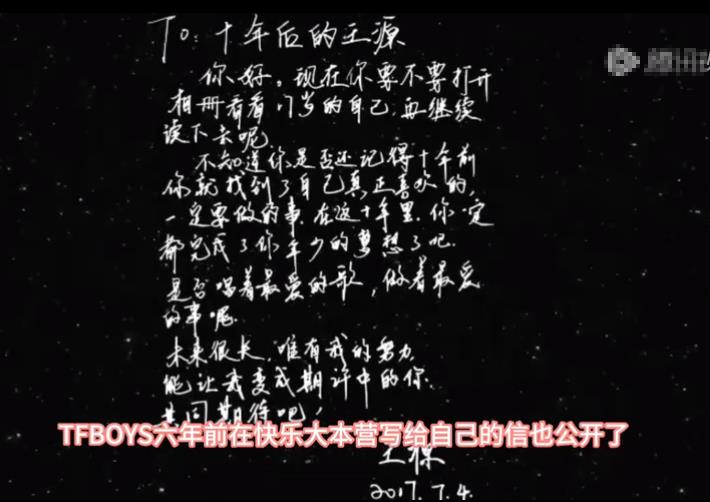 To：十年后的王源
你好。现在你要不要打开
相册看看17岁的自己,再继续
读下去呢
不知道你是否还记得十年前
你就找到了自己真正喜欢的,
一定要做的事,在这十年里,你一定
都完成了你年少的梦想了吧.
是否唱着最爱的歌，做着最爱
的事呢
未来很长,唯有我的努力
能让我变成期许中的你.
共同期待吧！
TFBOYS六年前在快乐大本营写给自己的信也公开了
王源
2017.7.4.
腾讯